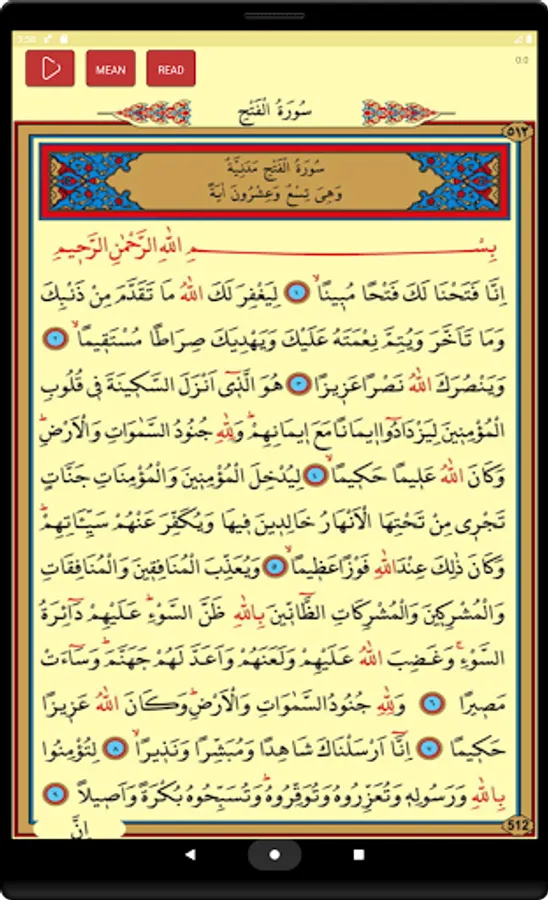 7:58
MEAN
READ
0:0
سُورَةُ الْفَتْحِ
٥١٢
سُورَةُ الْفَتْحِ مَدَنِيَّةٌ
وَهِيَ تِسْعٌ وَعِشْرُونَ اٰيَةً
بِسْمِ اللهِ الرَّحْمٰنِ الرَّحِيمِ
اِنَّا فَتَحْنَا لَكَ فَتْحًا مُبِينًاۙ ١ لِيَغْفِرَ لَكَ اللهُ مَا تَقَدَّمَ مِنْ ذَنْبِكَ
وَمَا تَاَخَّرَ وَيُتِمَّ نِعْمَتَهُ عَلَيْكَ وَيَهْدِيَكَ صِرَاطًا مُسْتَقِيمًاۙ ٢
وَيَنْصُرَكَ اللهُ نَصْرًا عَزِيزًا ٣ هُوَ الَّذٓي اَنْزَلَ السَّكِينَةَ فِي قُلُوبِ
الْمُؤْمِنِينَ لِيَزْدَادُٓوا اِيمَانًا مَعَ اِيمَانِهِمْۜ وَلِلّٰهِ جُنُودُ السَّمٰوَاتِ وَالْاَرْضِۜ
وَكَانَ اللهُ عَلِيمًا حَكِيمًاۙ ٤ لِيُدْخِلَ الْمُؤْمِنِينَ وَالْمُؤْمِنَاتِ جَنَّاتٍ
تَجْرِي مِنْ تَحْتِهَا الْاَنْهَارُ خَالِدِينَ فِيهَا وَيُكَفِّرَ عَنْهُمْ سَيِّـَٔاتِهِمْۜ
وَكَانَ ذٰلِكَ عِنْدَ اللهِ فَوْزًا عَظِيمًاۙ ٥ وَيُعَذِّبَ الْمُنَافِقِينَ وَالْمُنَافِقَاتِ
وَالْمُشْرِكِينَ وَالْمُشْرِكَاتِ الظَّٓانِّينَ بِاللهِ ظَنَّ السَّوْءِۜ عَلَيْهِمْ دَٓائِرَةُ
السَّوْءِۚ وَغَضِبَ اللهُ عَلَيْهِمْ وَلَعَنَهُمْ وَاَعَدَّ لَهُمْ جَهَنَّمَۜ وَسَٓاءَتْ
مَصِيرًا ٦ وَلِلّٰهِ جُنُودُ السَّمٰوَاتِ وَالْاَرْضِۜ وَكَانَ اللهُ عَزِيزًا
حَكِيمًا ٧ اِنَّٓا اَرْسَلْنَاكَ شَاهِدًا وَمُبَشِّرًا وَنَذِيرًاۙ ٨ لِتُؤْمِنُوا
بِاللهِ وَرَسُولِهِ وَتُعَزِّرُوهُ وَتُوَقِّرُوهُۜ وَتُسَبِّحُوهُ بُكْرَةً وَاَصِيلًا ٩
اِنَّ
512